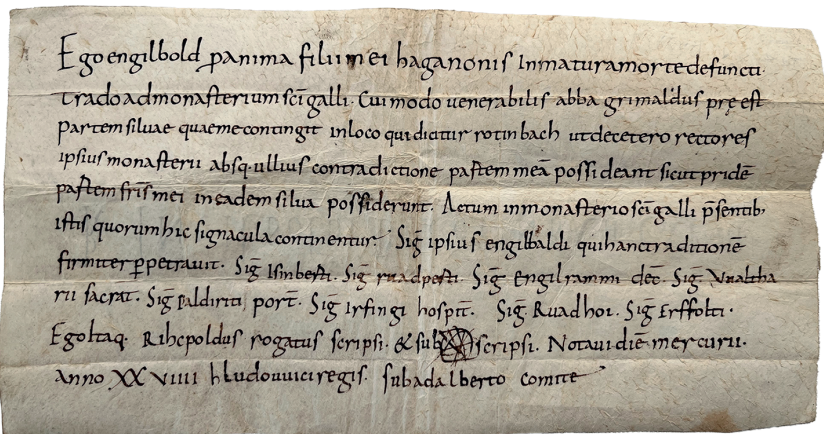 Ego engilbold p anima filii mei haganonis Inmatura morte defuncti.
trado ad monasterium sci galli. Cui modo venerabilis abba grimaldus pręest
partem silvae quae me contingit in loco qui dicitur rotinbach ut decetero rectores
ipsius monasterii absq. ullius contradictione partem meā possideant sicut pridē
partem fris mei in eadem silva possiderunt. Actum in monasterio sci galli p̄sentib;
istis quorum hic signacula continentur. Sig̅ ipsius engilbaldi qui hanc traditionē
firmiter ꝑpetravit. Sig̅ Isinberti. Sig̅ ruadperti. Sig̅ Engilrammi dec̅. Sig̅ Vualtha
rii sacrat̅. Sig̅ Paldirici port̅. Sig̅ Irfingi hospit̅. Sig̅ Ruadhoi. Sig̅ Erffolti.
Ego Itaq. Rihcpoldus rogatus scripsi. & sub scripsi. Notavi diē mercurii.
anno XXVIIII hludovvici regis. sub adalberto comite